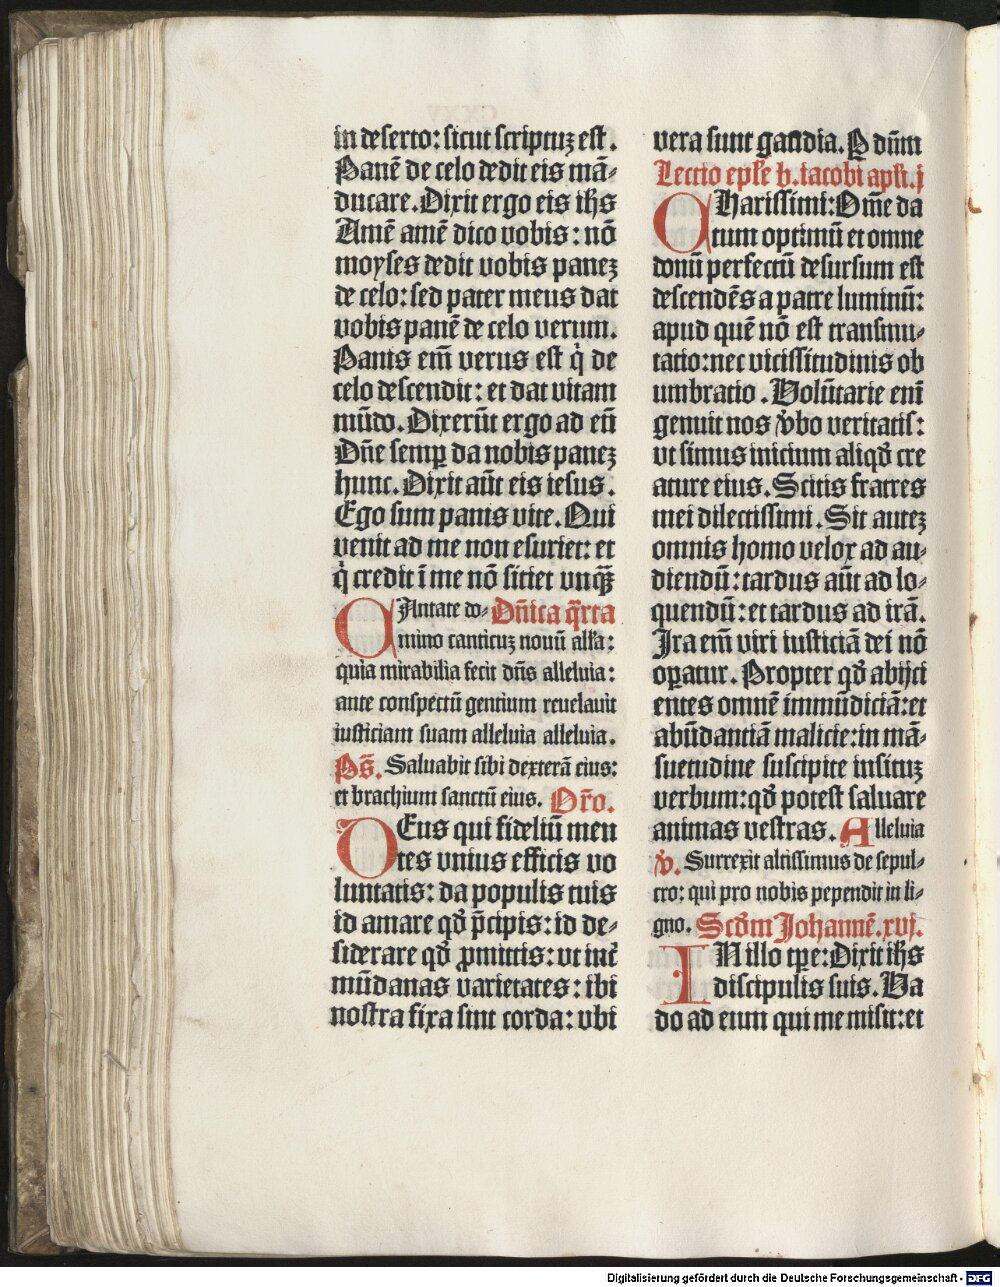 in deserto: sicut scriptuꝫ est.
Panē de celo dedit eis mā-
ducare. Dixit ergo eis ihs̄
Amē amē dico vobis: nō
moyses dedit vobis paneꝫ
de celo: sed pater meus dat
vobis panē de celo verum.
Panis em̄ verus est q̇ de
celo descendit: et dat vitam
mūdo. Dixerūt ergo ad eū
Dn̄e semꝑ da nobis paneꝫ
hunc. Dixit aūt eis iesus.
Ego sum panis vite. Qui
venit ad me non esuriet: et
q̇ credit ī me nō sitiet vnqꝫ̄
CAntate do- Dn̄ica q̄rta
mino canticuꝫ nouū all'a:
quia mirabilia fecit dn̄s alleluia:
ante conspectū gentium reuelauit
iusticiam suam alleluia alleluia.
Ps̄. Saluabit sibi dexterā eius:
et brachium sanctū eius. Or̄o.
DEus qui fideliū men
tes vnius efficis vo
luntatis: da populis tuis
id amare qd̄ p̄cipis: id de-
siderare qd̄ ꝓmittis: vt int̄
mūdanas varietates: ibi
nostra fixa sint corda: vbi
vera sunt gaudia. P dn̄m
Lectio epl'e b. iacobi apl'i. j
CHarissimi: Om̄e da
tum optimū et omne
donū perfectū desursum est
descendēs a patre luminū:
apud quē nō est transmu-
tatio: nec vicissitudinis ob
umbratio. Volūtarie enī
genuit nos v̓bo veritatis:
vt simus inicium aliqd̄ cre
ature eius. Scitis fratres
mei dilectissimi. Sit auteꝫ
omnis homo velox ad au-
diendū: tardus aūt ad lo-
quendū: et tardus ad irā.
Ira em̄ viri iusticiā dei nō
oꝑatur. Propter qd̄ abijci
entes omnē immūdiciā: et
abūdantiā malicie: in mā-
suetudine suscipite insituꝫ
verbum: qd̄ potest saluare
animas vestras. Alleluia
v̓. Surrexit altissimus de sepul-
cro: qui pro nobis pependit in li-
gno. Scd̄m Johannē. xvj.
IN illo tꝑe: Dixit ihs̄
discipulis suis. Va
do ad eum qui me misit: et
Digitalisierung gefördert durch die Deutsche Forschungsgemeinschaft - DFG